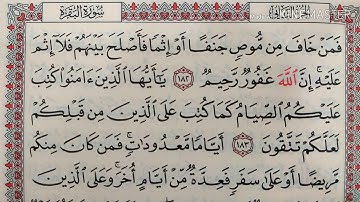 سورة البقرة الجزء الثاني
فَمَنْ خَافَ مِن مُّوصٍ جَنَفًا أَوْ إِثْمًا فَأَصْلَحَ بَيْنَهُمْ فَلَآ إِثْمَ
عَلَيْهِ ۚ إِنَّ ٱللَّهَ غَفُورٌ رَّحِيمٌ ١٨٢ يَٰٓأَيُّهَا ٱلَّذِينَ ءَامَنُوا۟ كُتِبَ
عَلَيْكُمُ ٱلصِّيَامُ كَمَا كُتِبَ عَلَى ٱلَّذِينَ مِن قَبْلِكُمْ
لَعَلَّكُمْ تَتَّقُونَ ١٨٣ أَيَّامًا مَّعْدُودَٰتٍ ۚ فَمَن كَانَ مِنكُم
مَّرِيضًا أَوْ عَلَىٰ سَفَرٍ فَعِدَّةٌ مِّنْ أَيَّامٍ أُخَرَ ۚ وَعَلَى ٱلَّذِينَ